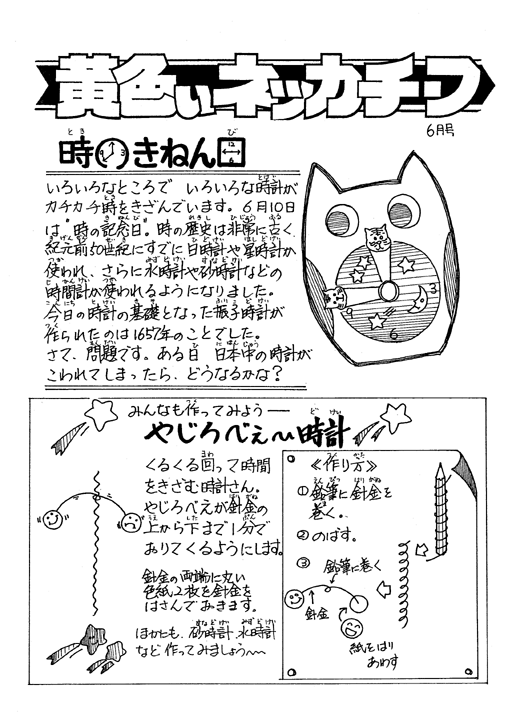 黄色いネッカチーフ
6月号
時のきねん日
いろいろなところで いろいろな時計が
カチカチ時をきざんでいます。6月10日
は"時の記念日"。時の歴史は非常に古く、
紀元前50世紀にすでに日時計や星時計が
使われ、さらに水時計や砂時計などの
時間計が使われるようになりました。
今日の時計の基礎となった振子時計が
作られたのは1657年のことでした。
さて、問題です。ある日 日本中の時計が
こわれてしまったら、どうなるかな?
9
6
みんなも作ってみよう——
やじろべえ〜時計
くるくる回って時間
をきざむ時計さん。
やじろべえが針金の
上から下まで1分で
おりてくるようにします。
針金の両端に丸い
色紙2枚を針金を
はさんであきます。
ほかにも、砂時計、水時計
など作ってみましょう〜
《作り方》
①鉛筆に針金を
巻く。
②のばす。
③
鉛筆に巻く
針金
紙をはり
あわす